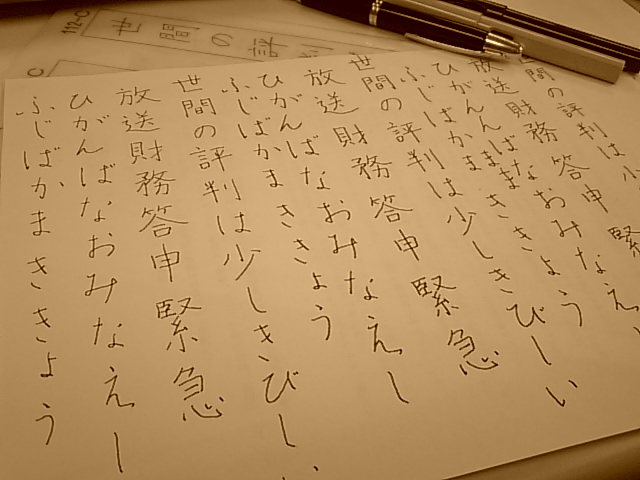 112-C
世間の評判
世間の評判は少
放送財務答申緊
ひがんばなおみなえ
ふじばかまききょう
世間の評判は少しきびしい
放送財務答申緊急
ひがんばなおみなえし
ふじばかまききょう
世間の評判は少しきびしい
放送財務答申緊急
ひがんばなおみなえし
ふじばかまききょう